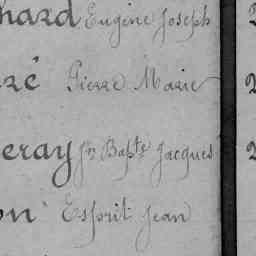 hard Eugène Joseph
ré Pierre Marie
eray Jn Bapte Jacques
on Esprit Jean